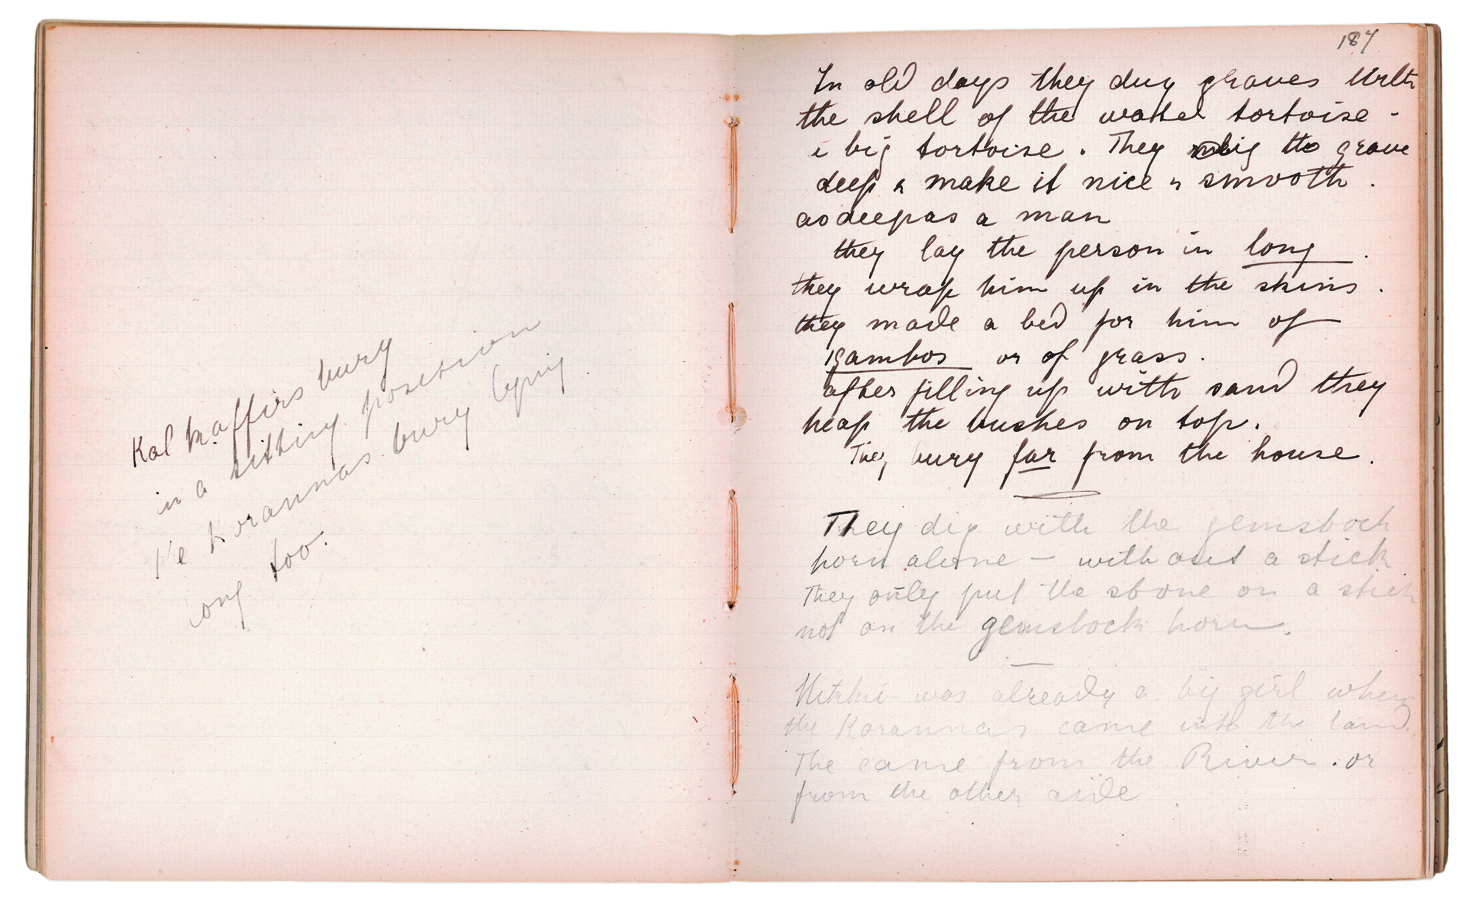 Kal Kaffirs bury
in a sitting position
The Korannas bury lying
long too.
187
In old days they dug graves with
the shell of the water tortoise -
i big tortoise. They dig the grave
deep & make it nice & smooth.
as deep as a man
they lay the person in long.
they wrap him up in the skins.
they made a bed for him of
Kambos or of grass.
after filling up with sand they
heap the bushes on top.
They bury far from the house.
They dig with the gemsbock
horn alone — without a stick
They only put the stone on a stick
not on the gemsbock horn.
was already a big girl when
the Korannas came into the land
The came from the River. or
from the other side